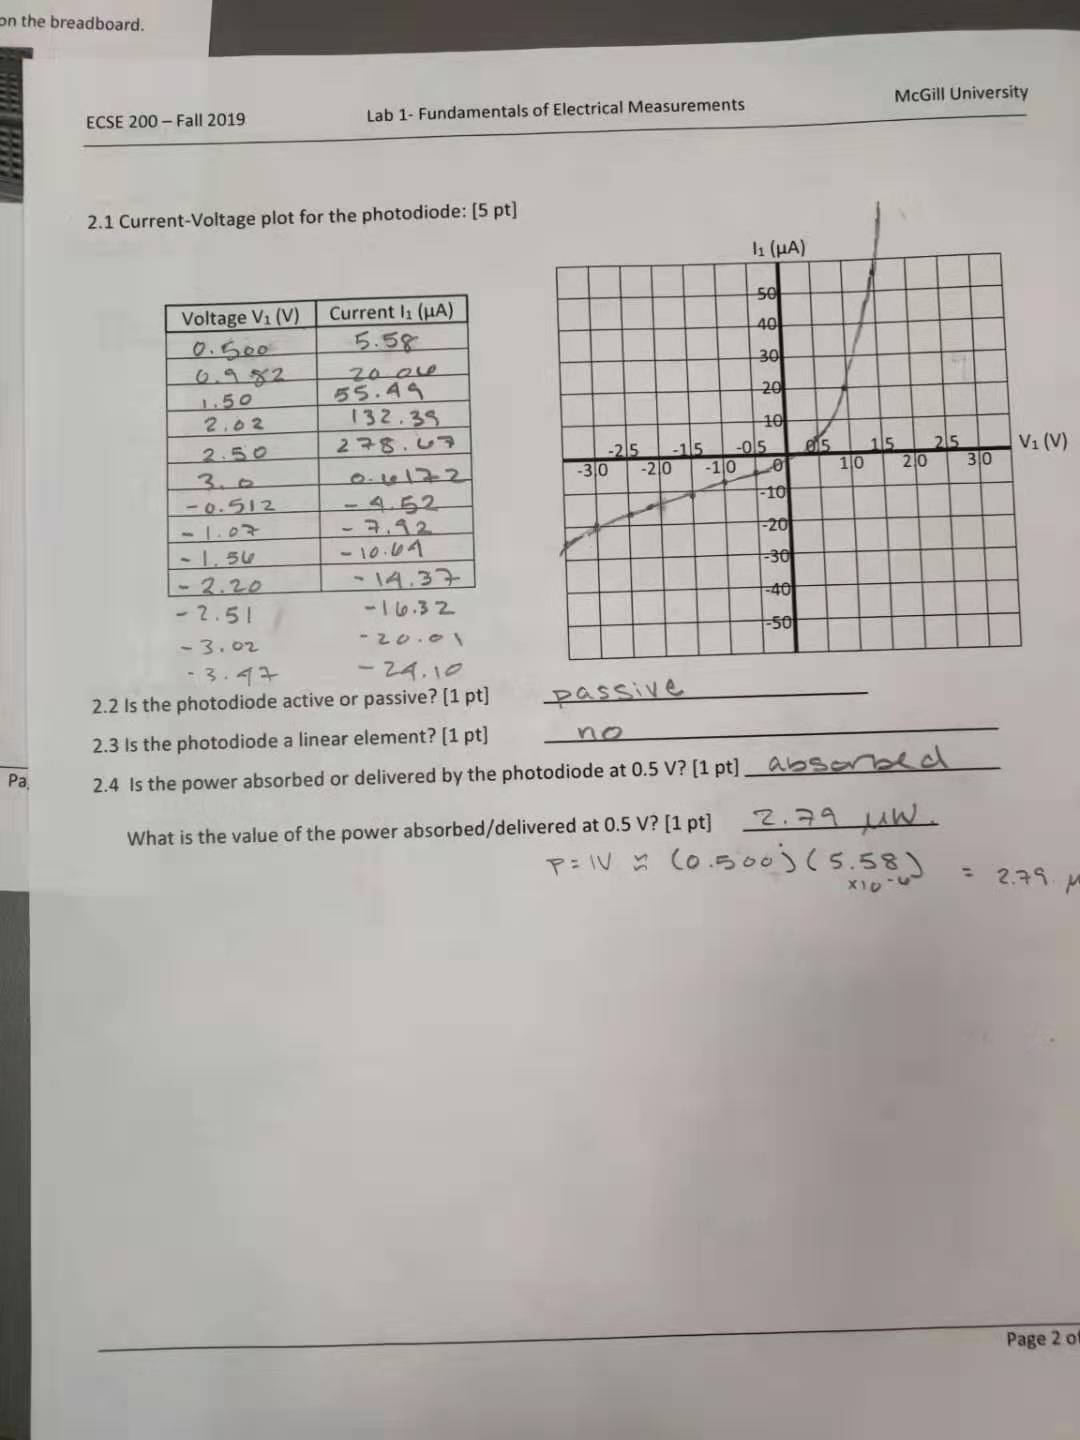 on the breadboard.
ECSE 200 – Fall 2019 Lab 1- Fundamentals of Electrical Measurements McGill University
2.1 Current-Voltage plot for the photodiode: [5 pt]
Voltage V₁ (V) Current I₁ (μA)
0.500 5.58
0.982 20.06
1.50 55.49
2.02 132.39
2.50 278.67
3.0 0.6172
-0.512 -4.52
-1.07 -7.92
-1.56 -10.64
-2.20 -14.37
-2.51 -16.32
-3.02 -20.01
-3.47 -24.10
I₁ (μA)
50
40
30
20
10
-2.5 -1.5 -0.5 0.5 1.5 2.5 V₁ (V)
-3.0 -2.0 -1.0 0 1.0 2.0 3.0
-10
-20
-30
-40
-50
2.2 Is the photodiode active or passive? [1 pt] passive
2.3 Is the photodiode a linear element? [1 pt] no
Pa
2.4 Is the power absorbed or delivered by the photodiode at 0.5 V? [1 pt] absorbed
What is the value of the power absorbed/delivered at 0.5 V? [1 pt] 2.79 μW.
P = IV = (0.500)(5.58) = 2.79 μ
x10-6
Page 2 of